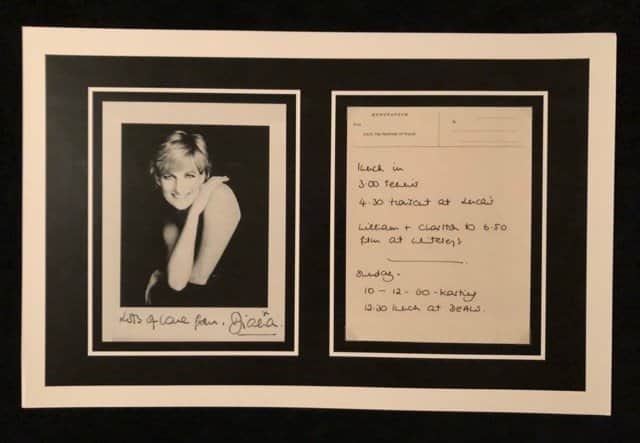 Lots of love from, Diana.
MEMORANDUM
From
To
Lunch in
3.00 Tennis
4.30 Haircut at
William + Charlton to 6.50
film at Whiteleys
Sunday -
10 - 12 - 00 - Karting
12.30 Lunch at DEALS.